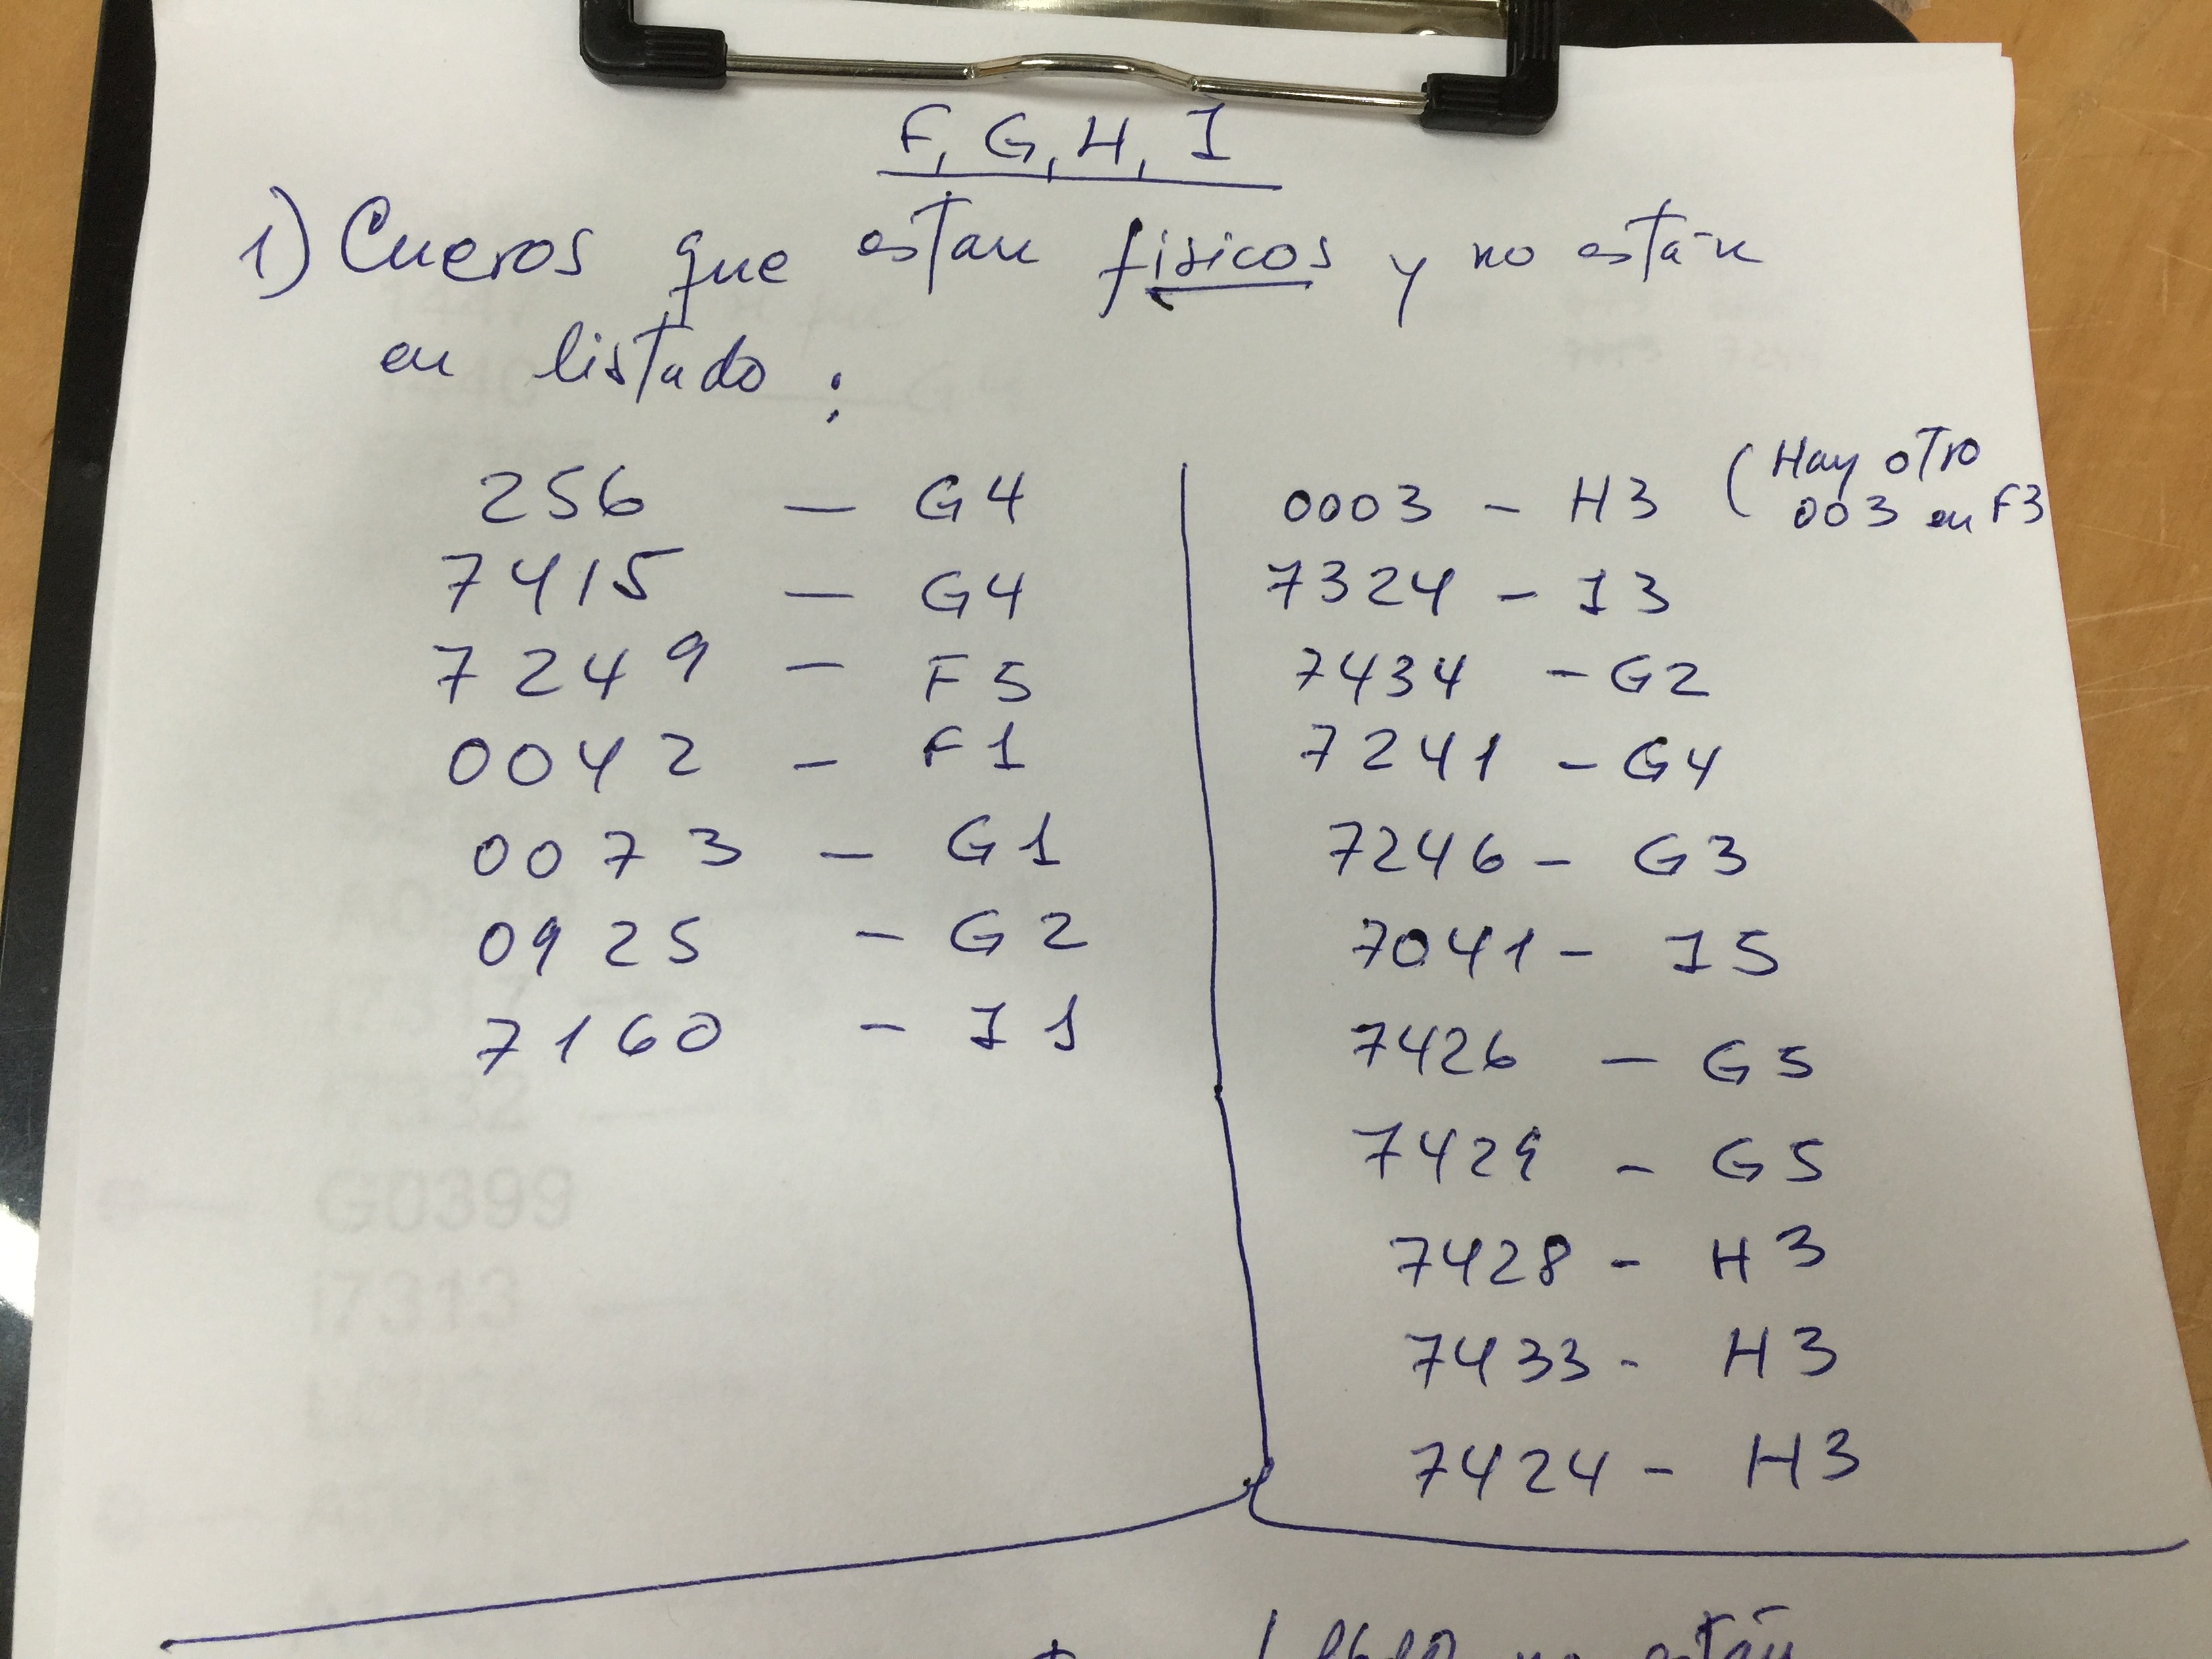 F, G, H, I
1) Cueros que estan físicos y no están
en listado :
256 — G4
7415 — G4
7249 — F5
0042 — F1
0073 — G1
0925 — G2
7160 — I1
0003 — H3 (Hay otro
003 en F3
7324 — I3
7434 — G2
7241 — G4
7246 — G3
7041 — I5
7426 — G5
7429 — G5
7428 — H3
7433 — H3
7424 — H3
G0399
I7313
no están